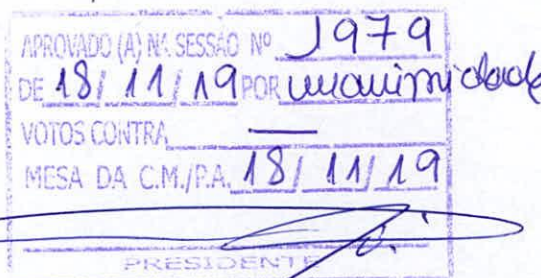 APROVADO (A) NA SESSÃO Nº 1979
DE 18/11/19 POR unanimidade
VOTOS CONTRA —
MESA DA C.M./P.A. 18/11/19
PRESIDENTE